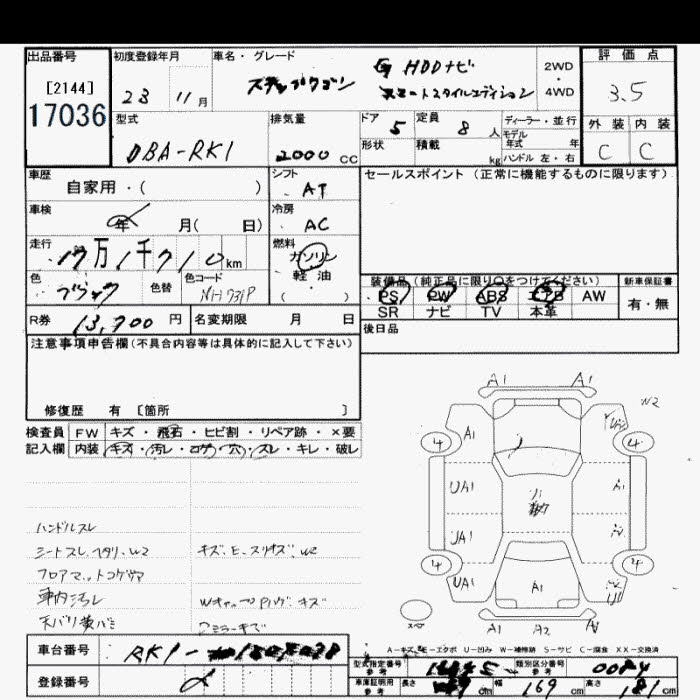 出品番号
[2144]
17036
初度登録年月
23 11月
車名・グレード
ステップワゴン
G HDDナビ
スマートスタイルエディション
2WD
・
4WD
評価点
3.5
外装 内装
C C
型式
DBA-RK1
排気量
2000 cc
ドア 5
定員 8 人
形状
積載 kg
ディーラー・並行
モデル
年式 年
ハンドル 左・右
車歴
自家用・( )
シフト
AT
セールスポイント(正常に機能するものに限ります)
車検
年 月( 日)
冷房
AC
走行
km
燃料
ガソリン
軽油
( )
色
ブラック
色替
色コード
NH731P
装備品(純正品に限り○をつけてください)
PS PW ABS エアB AW
SR ナビ TV 本革
新車保証書
有・無
R券 13,900 円
名変期限 月 日
後日品
注意事項申告欄(不具合内容等は具体的に記入して下さい)
修復歴 有 [箇所 ]
検査員 FW キズ・飛石・ヒビ割・リペア跡・×要
記入欄 内装 キズ・汚レ・コゲ・穴・スレ・キレ・破レ
ハンドルスレ
シートスレ、ヘタリ、W2
フロアマットコゲ穴
車内汚レ
天バリ黄バミ
キズ、E、スリキズ、W2
キズ
ミラーキズ
A1 A1
W2
A1
4 4
UA1 A1
UA1
4 4
UA1 A1
A1 A2
A-キズ E-エクボ U-凹み W-補修跡 S-サビ C-腐食 XX-交換済
車台番号
RK1-
登録番号
型式指定番号
参考
類別区分番号
参考
車庫証明用
参考
長さ cm 幅 169 cm 高さ 81 cm